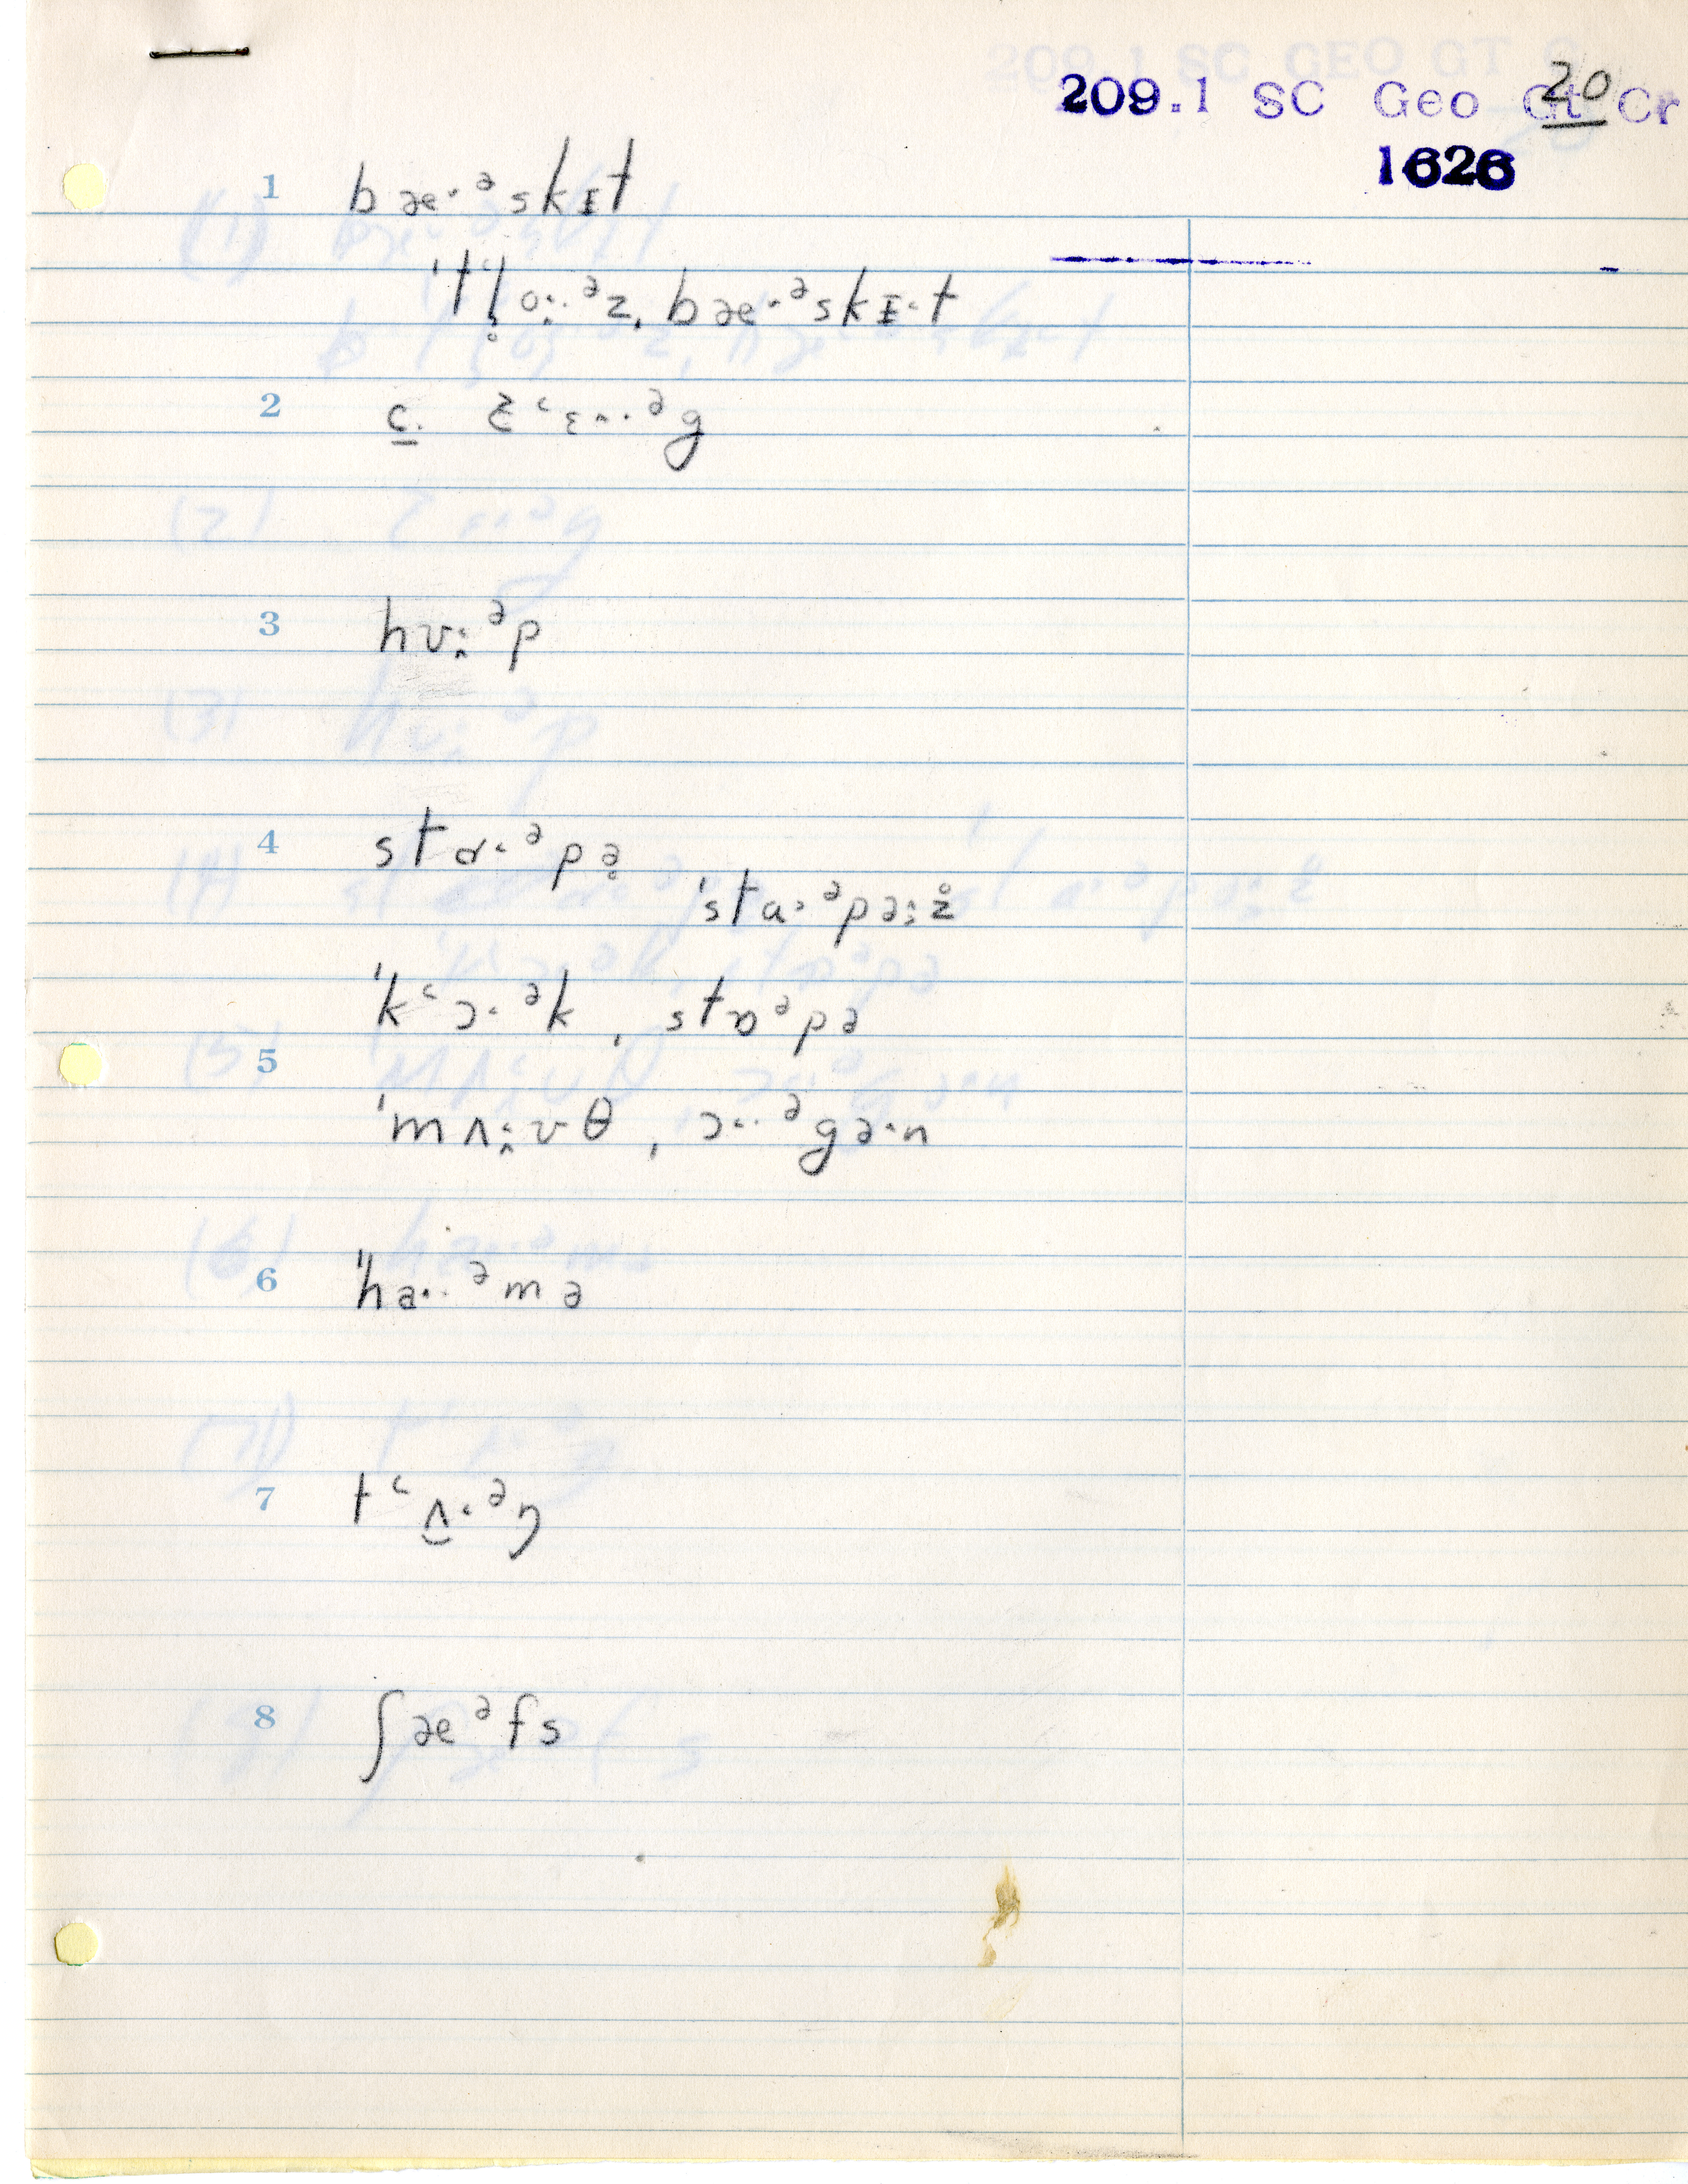 20
209.1 SC Geo Gt Cr
1626
1 bæ˔·ᵊskɪt
ˈtl̥o˔·ᵊz, bæ˔·ᵊskɪ˔t
2 c. ɛ˂ɛ˄··ᵊg
3 hʊ:ᵊp
4 stɑ˂·ᵊpə̥
ˈsta˃·ᵊpə:z̥
ˈk˂ɔ·ᵊk, stɒᵊpə
5
ˈmʌ:ʊθ, ɔ˂·ᵊgə·n
6 ˈha··ᵊmə
7 t˂ʌ̮·ᵊŋ
8 ʃæᵊfs